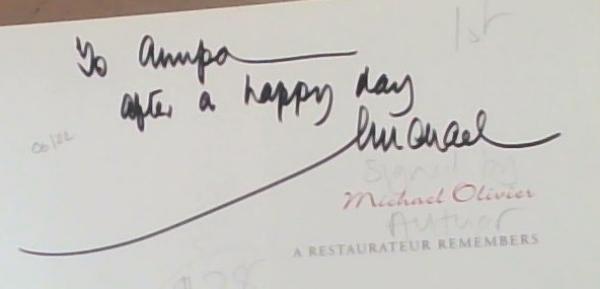 1st
To Anupa
after a happy day
Michael
06/22
Signed by
Michael Olivier
Author
A RESTAURATEUR REMEMBERS